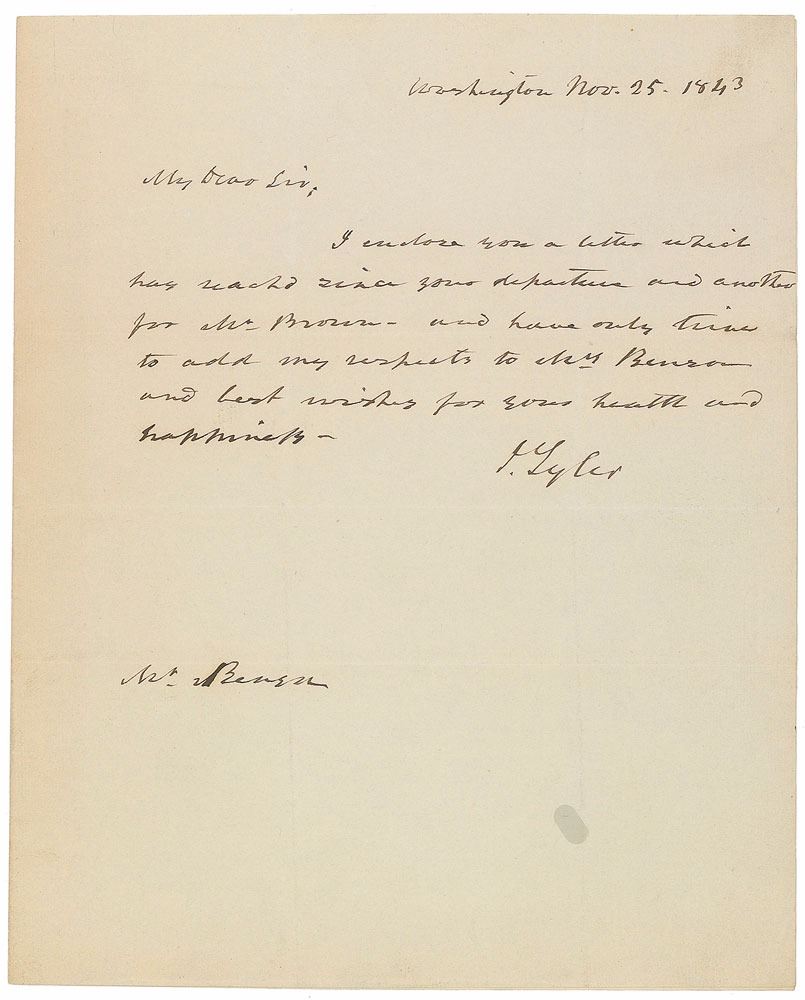 Washington Nov. 25. 1843
My Dear Sir,
I enclose you a letter which
has reachd since your departure and another
for Mr. Brown - and have only time
to add my respects to Mrs Benson
and best wishes for your health and
happiness -
J. Tyler
Mr. Benson